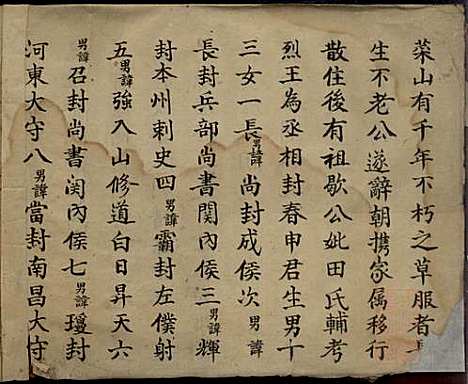 菜山有千年不朽之草服者長
生不老公遂辭朝携家属移行
散住後有祖歇公妣田氏輔考
烈王為丞相封春申君生男十
三女一長男諱尚封成侯次男諱
長封兵部尚書関內侯三男諱輝
封本州刺史四男諱霸封左僕射
五男諱強入山修道白日昇天六
男諱召封尚書関內侯七男諱瓊封
河東大守八男諱當封南昌大守